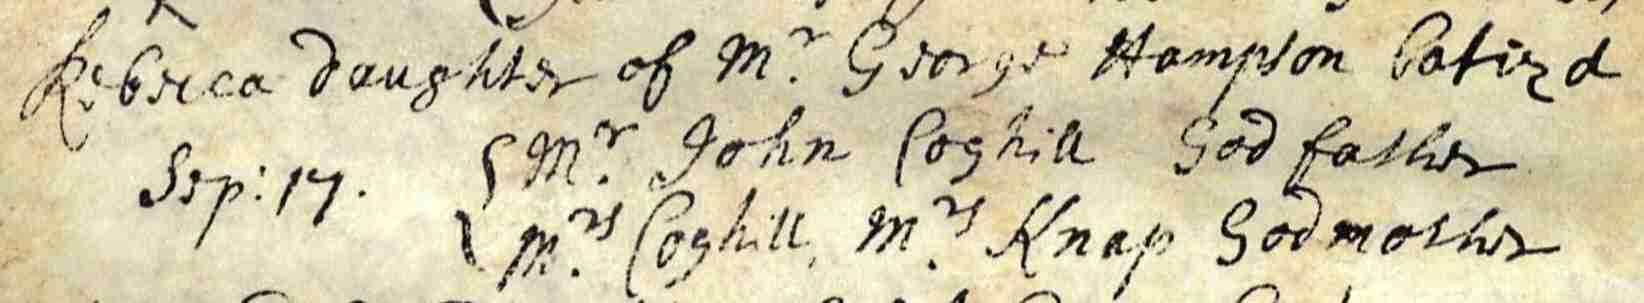 Rebecca daughter of Mr. George Hampson batized
Sep: 17. { Mr. John Coghill Godfather
{ Mrs. Coghill, Mrs. Knap Godmother